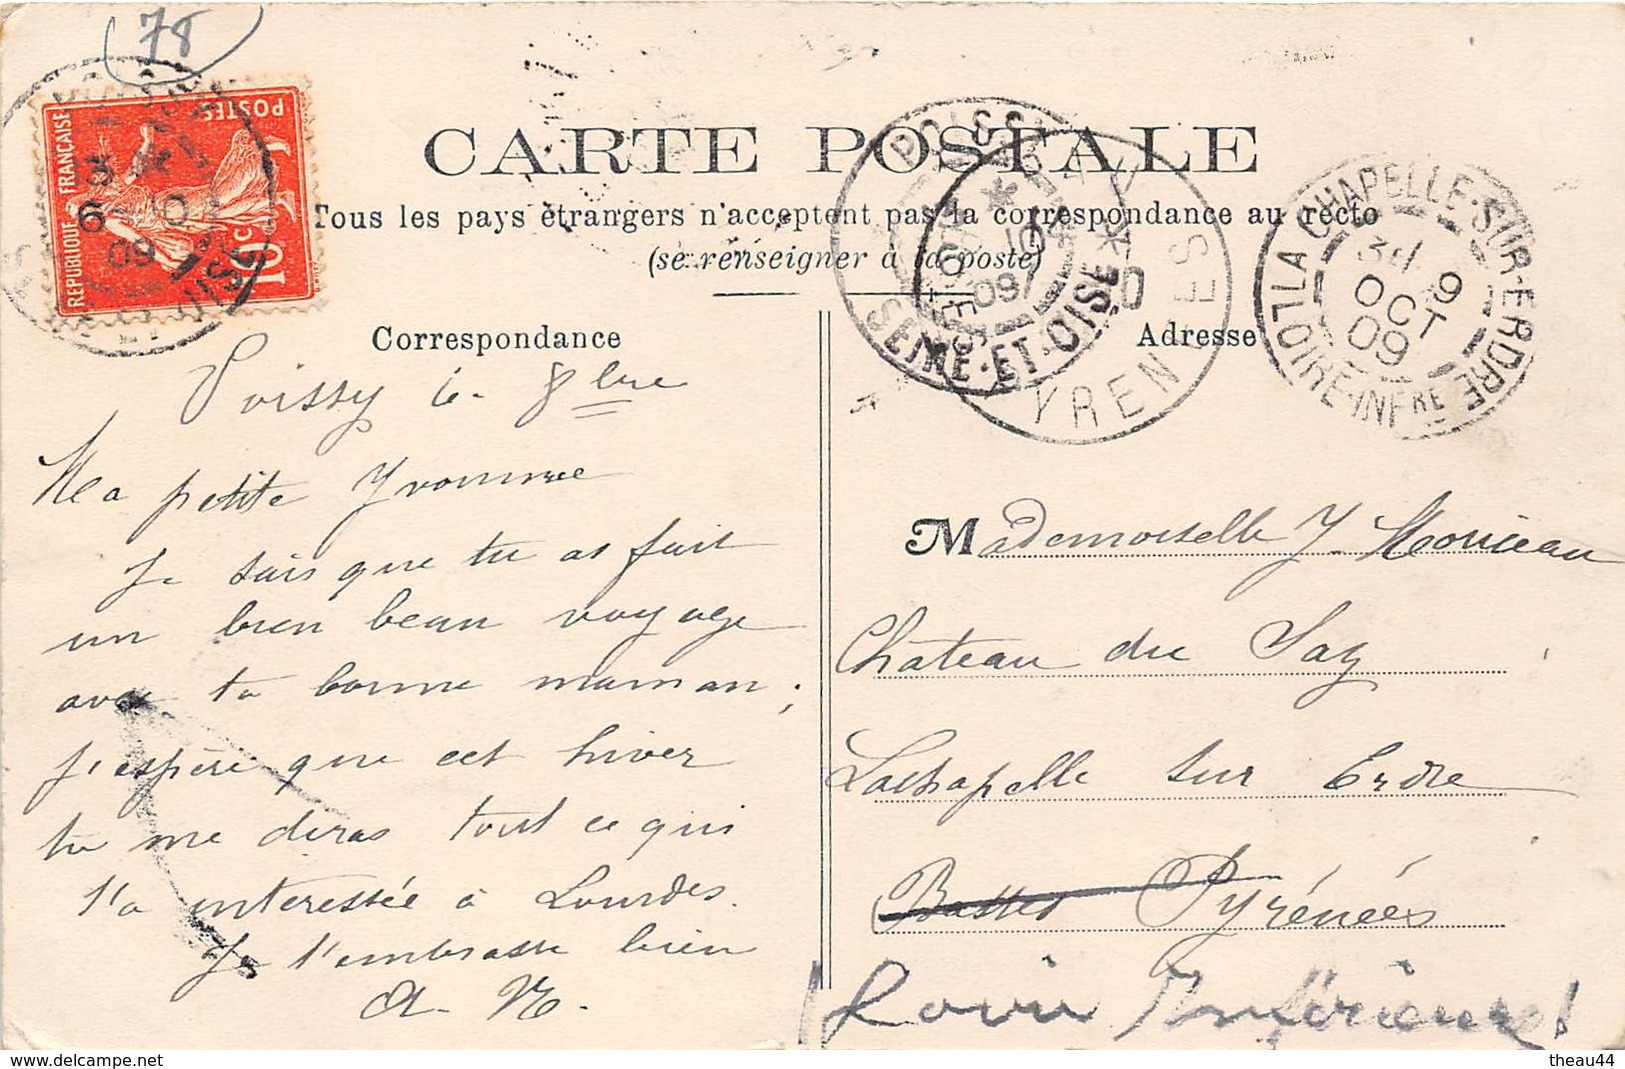 78
POSTES
REPUBLIQUE FRANÇAISE
10 c
3 *
6 10
09
CARTE POSTALE
Tous les pays étrangers n'acceptent pas la correspondance au recto
(se renseigner à la poste)
POISSY
*
10
09
SEINE-ET-OISE
PYRENEES
LA CHAPELLE-SUR-ERDRE
9
OCT
09
LOIRE-INFRE
Correspondance
Poissy le 8bre
Ma petite Yvonne
Je sais que tu as fait
un bien beau voyage
avec ta bonne maman ;
j'espère que cet hiver
tu me diras tout ce qui
t'a interessée à Lourdes.
Je t'embrasse bien
Adresse
Mademoiselle Y. Moriceau
Château du Say
Lachapelle sur Erdre
Basses Pyrénées
Loire Inférieure
theau44